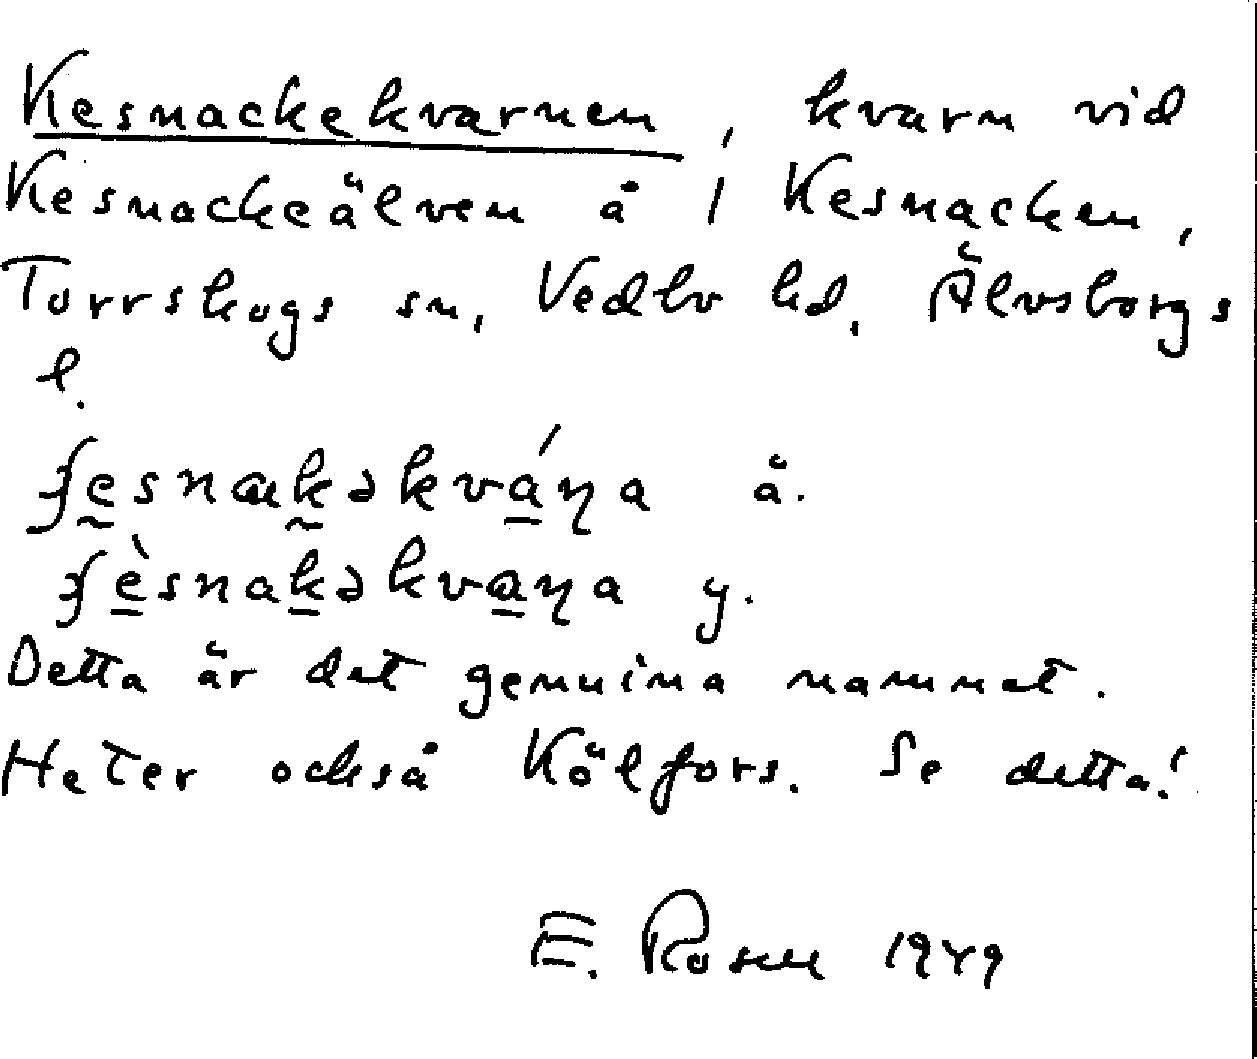 Kesnackekvarnen, kvarn vid
Kesnackeälven å 1 Kesnacken,
Torrskogs sn, Vedbo hd, Älvsborgs
l.
å.
y.
Detta är det genuina namnet.
Heter också Kölfors. Se detta!
E. Rosell 1949